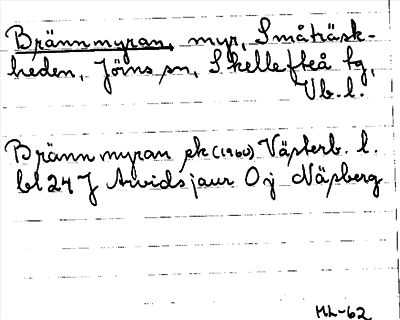 Brännmyran, myr, Småträsk-
heden, Jörns sn, Skellefteå tg,
Vb. l.
Brännmyran ek (1960) Västerb. l.
bl 24 J Arvidsjaur Öj Näsberg
HL-62